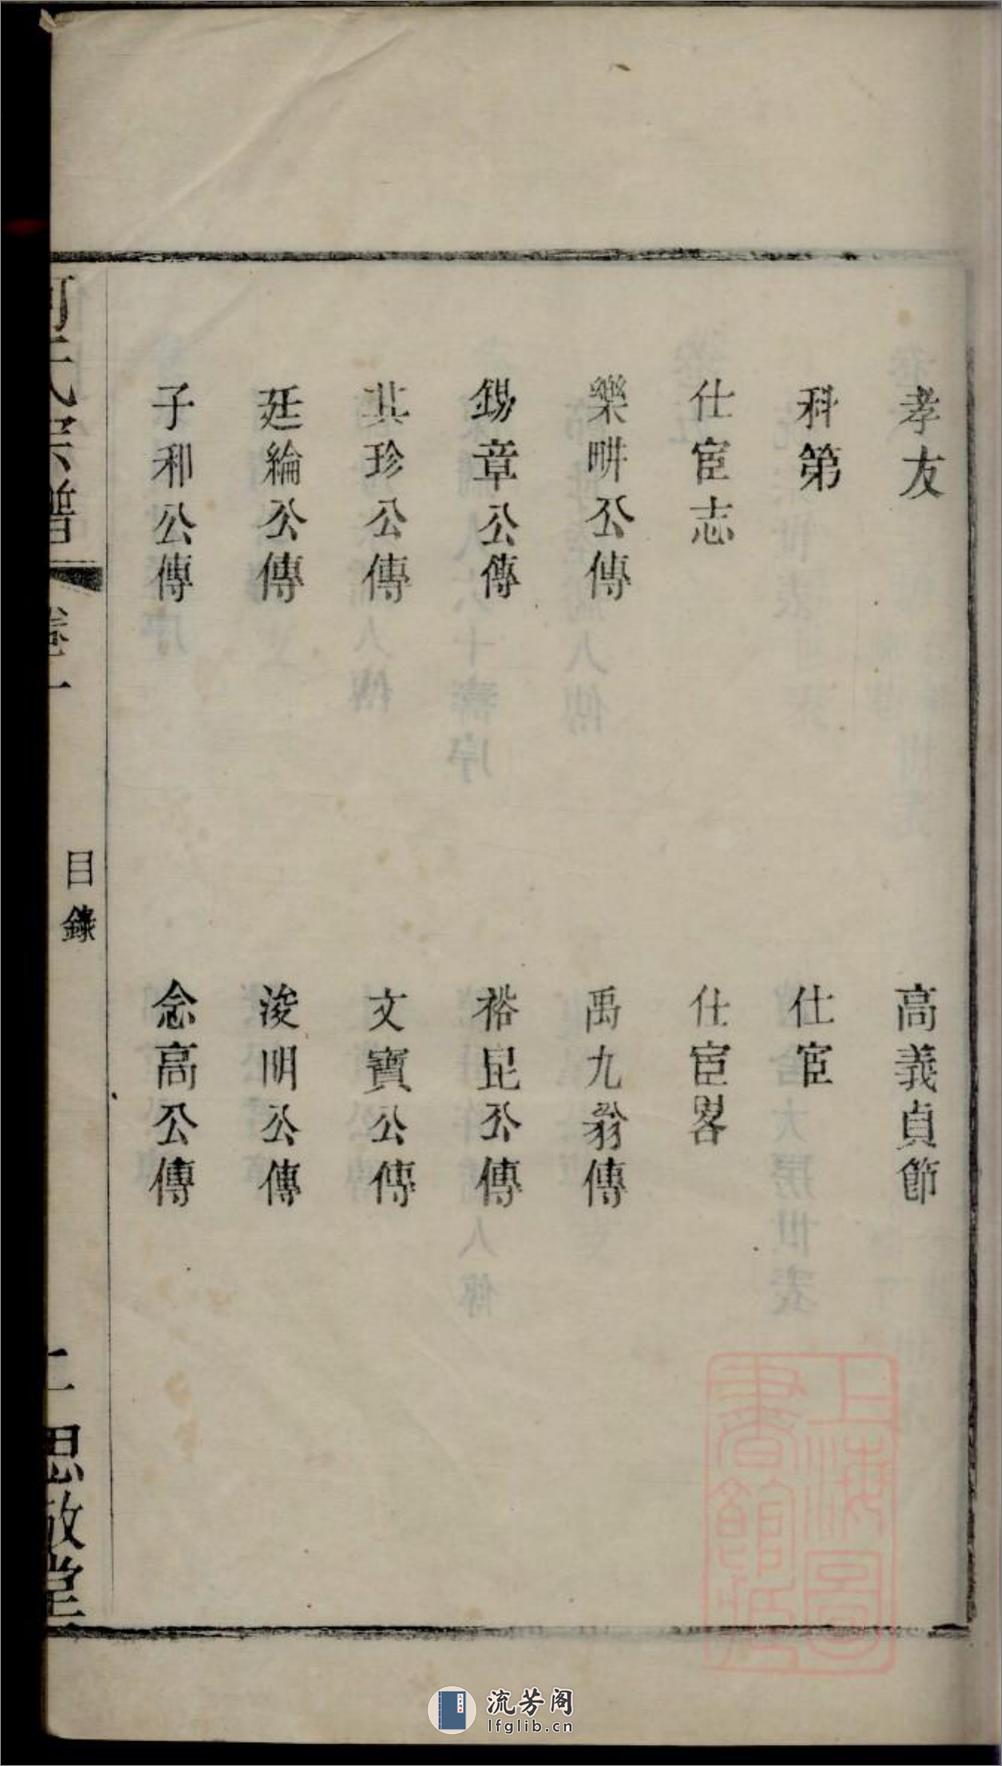 孝友
高義貞節
科第
仕宦
仕宦志
仕宦畧
樂畊公傳
禹九翁傳
錫章公傳
裕昆公傳
其珍公傳
文寶公傳
廷綸公傳
浚明公傳
子和公傳
念高公傳
氏宗譜
卷一
目錄
二
思敬堂
上海圖書館藏
流芳阁
lfglib.cn